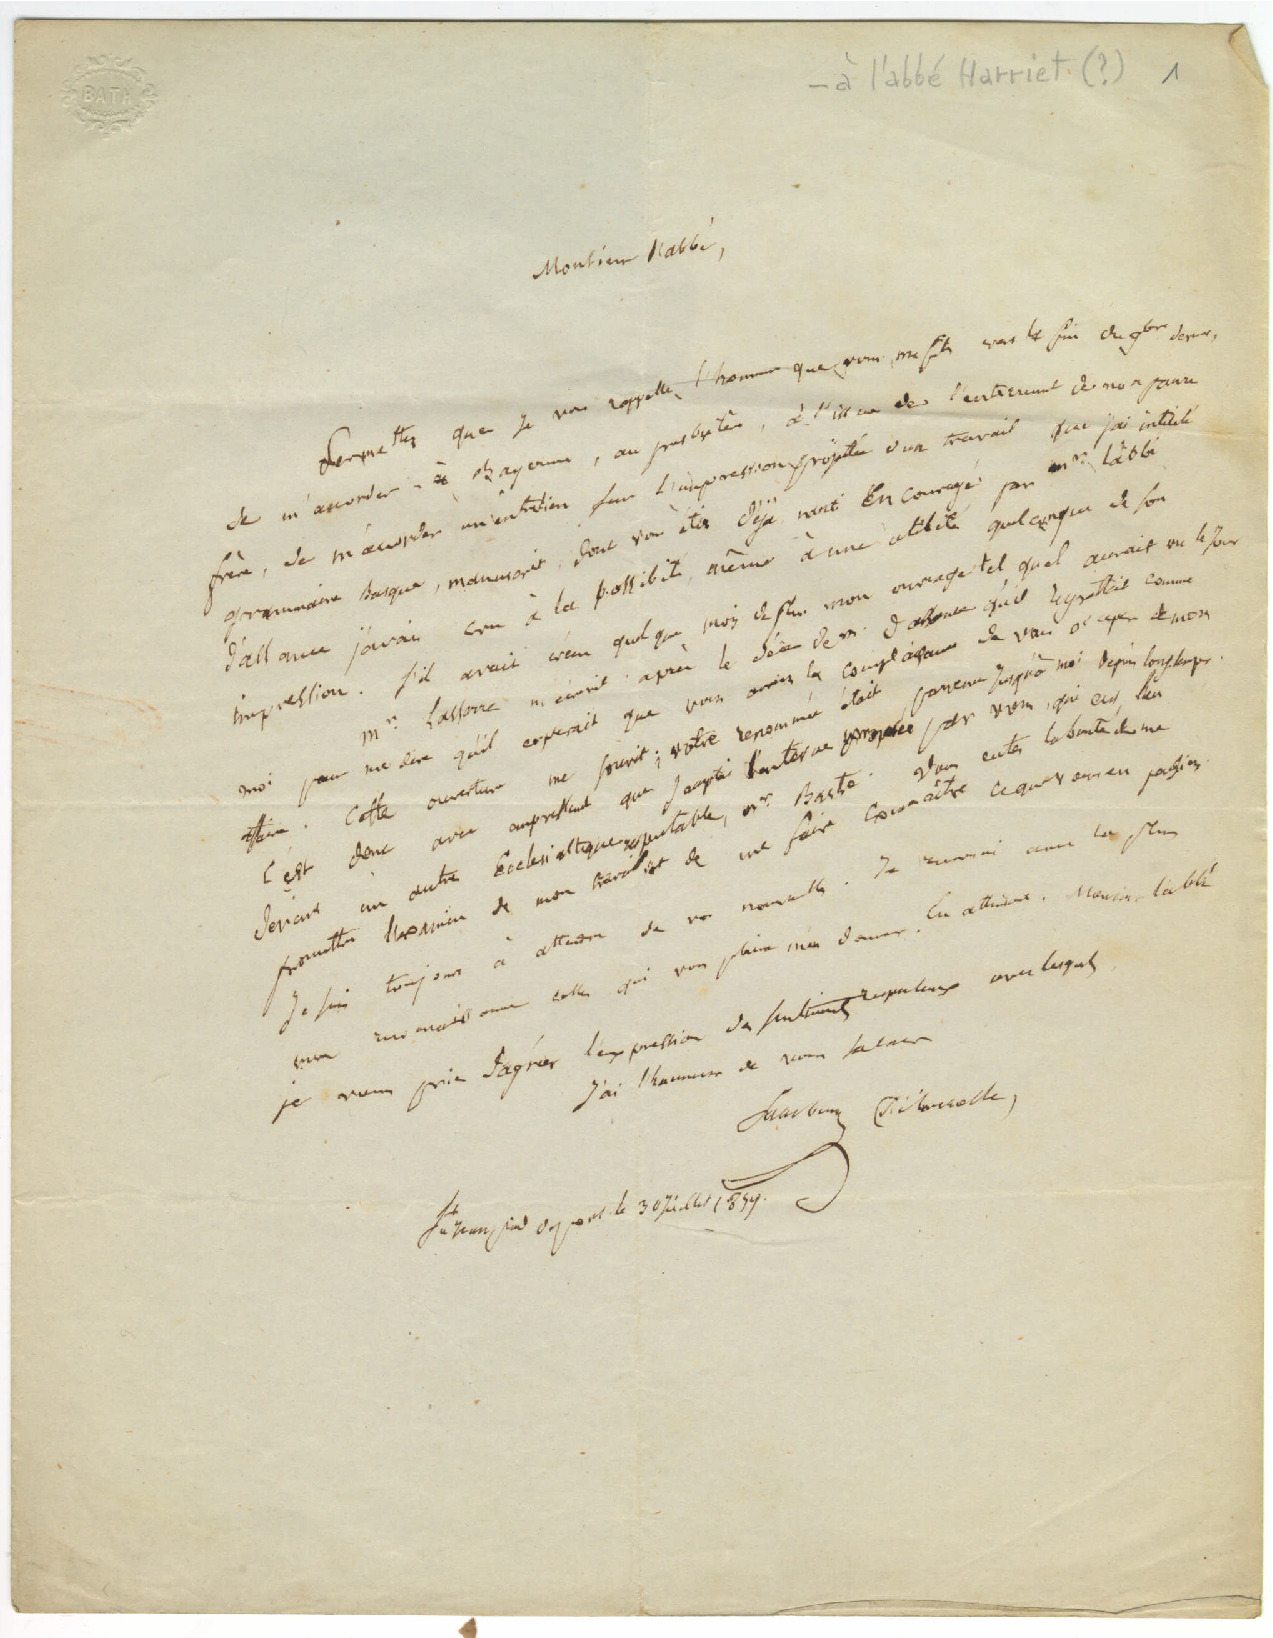 BATH
– à l'abbé Harriet (?) 1
Monsieur l'abbé,
Permettez que je vous rappelle l'honneur que vous me fites vers la fin du 9bre dernier,
de m'accorder à Bayonne, au presbytère, à l'issue de l'enterrement de mon pauvre
frère, de m'accorder un entretien sur l'impression projetée d'un travail que j'ai intitulé
grammaire Basque, manuscrit, dont vous étiez déjà nanti Encouragé par mr l'abbé
d'allance j'avais cru à la possibilité, même à une utilité quelconque de son
impression. S'il avait vécu quelque mois de plus mon ouvrage tel quel aurait vu le jour
Mr. Lassorre m'écrivit après le décès de m. d'allance qu'il regrettait comme
moi pour me dire qu'il esperait que vous auriez la complaisance de vous occuper de mon
affaire. Cette ouverture me sourit; votre renommée était parvenue jusqu'à moi depuis longtemps.
C'est donc avec empressement que j'acceptai l'entrevue proposée par vous, qui eut lieu
devant un autre Ecclesiastique respectable, mr. Basté. Vous eutes la bonté de me
promettre l'examen de mon travail et de me faire connaître ce que vous en pensiez.
Je suis toujours à attendre de vos nouvelles. Je recevrai avec la plus
vive reconnaissance celles qui vous plaira m'en donner. En attendant, Monsieur l'abbé
je vous prie d'agréer l'expression des sentiments respectueux avec lesquels
J'ai l'honneur de vous saluer
St Jean pied de port le 30 Juillet 185